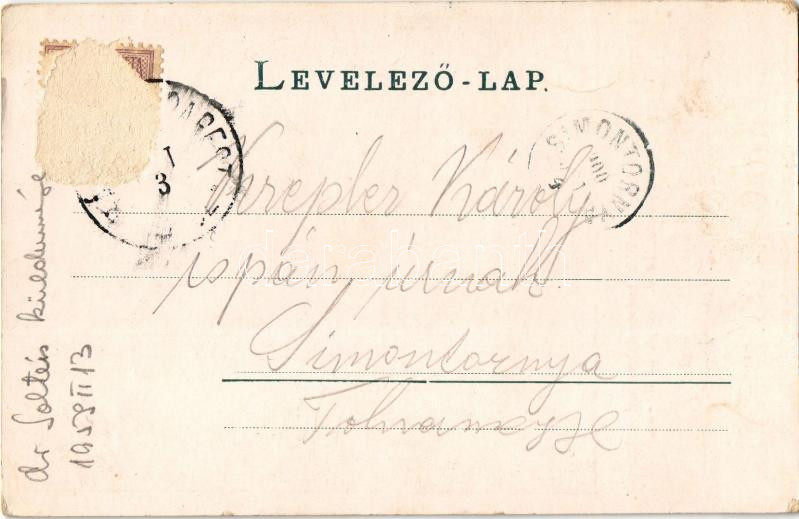 LEVELEZŐ-LAP.
SIMONTORNYA
3
Károly
ispán úrnak
Simontornya
Tolnamegye
dr Soltész küldeménye
1959 II 13